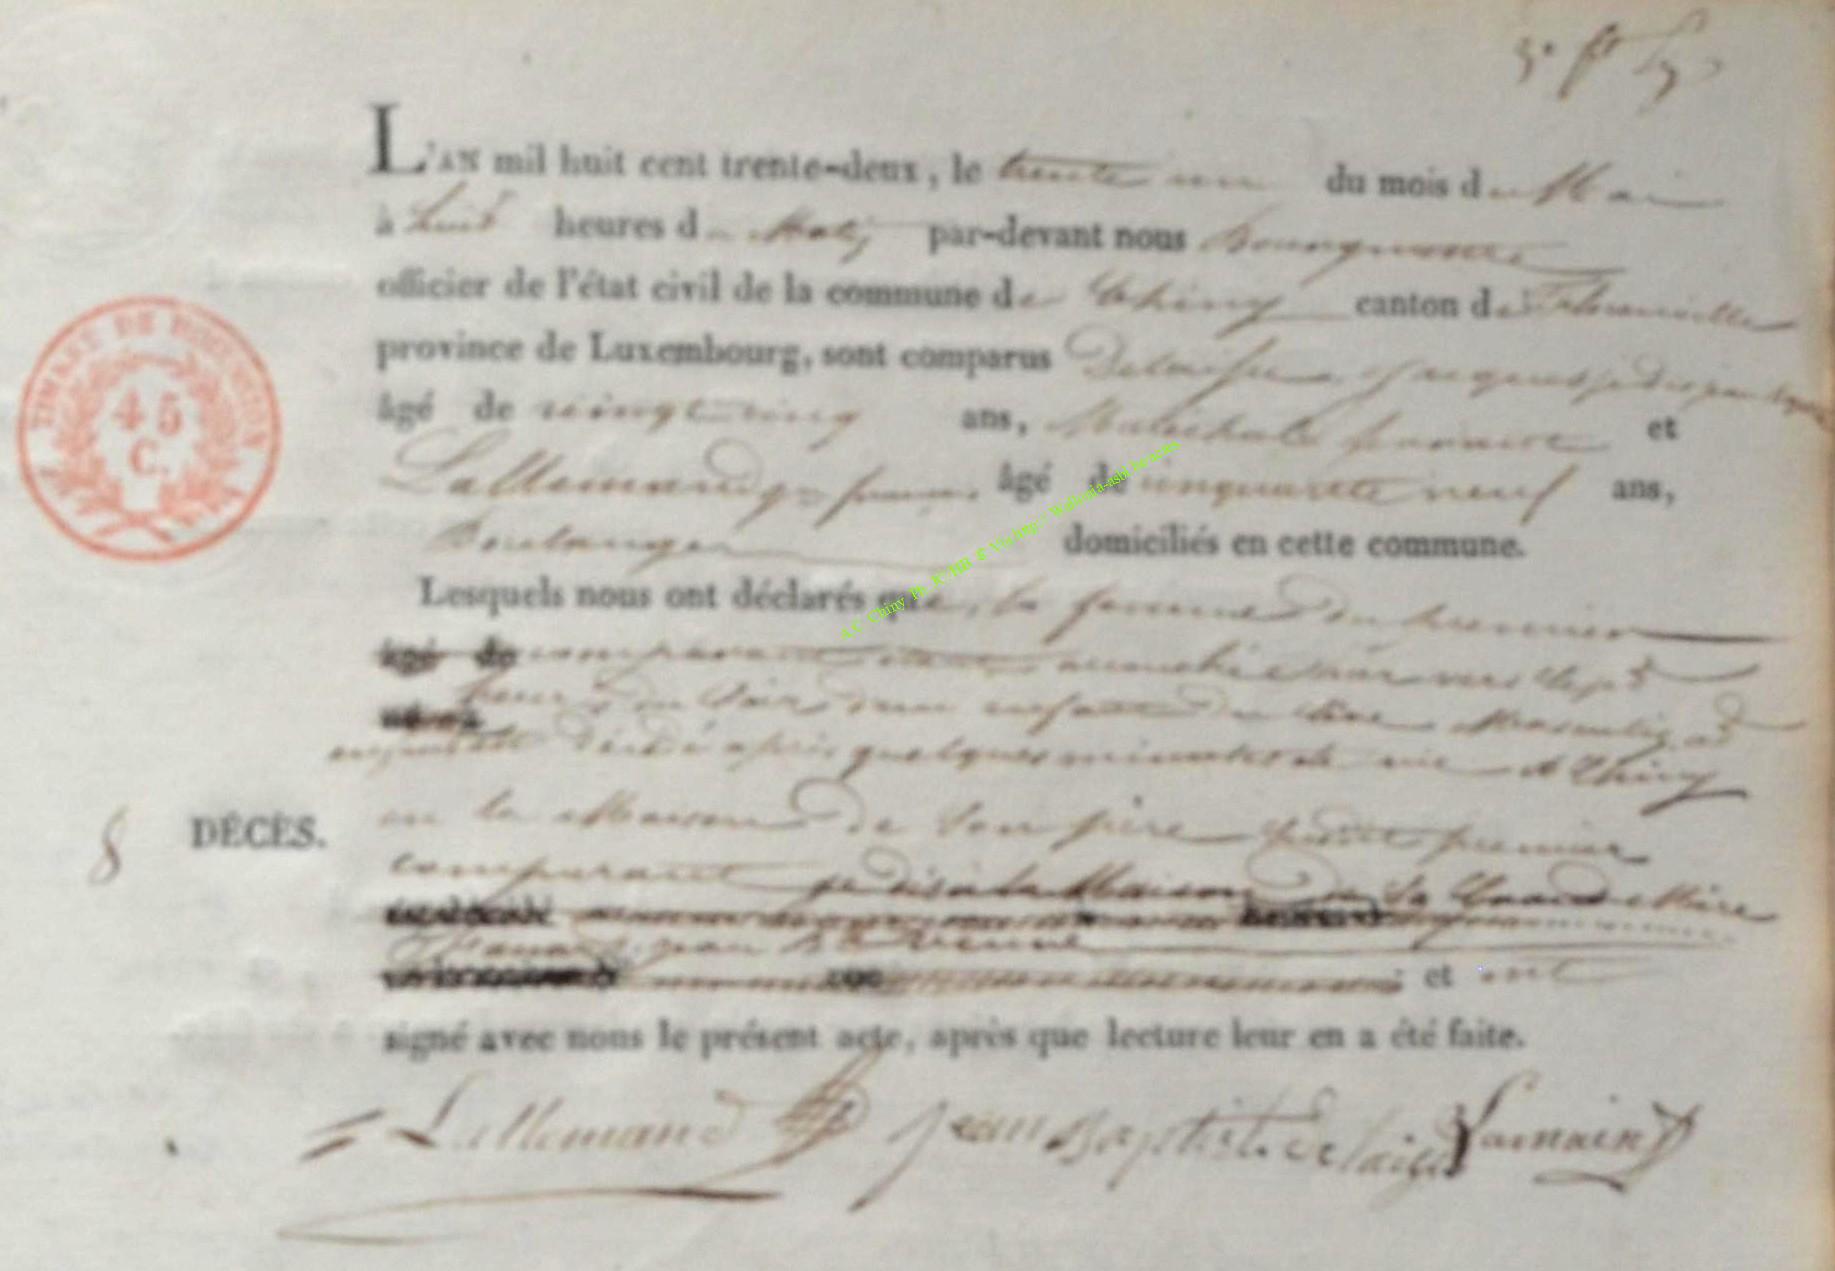 L'AN mil huit cent trente-deux, le trente un du mois de Mai
à huit heures du Matin par-devant nous Bourguemestre
officier de l'état civil de la commune de Chiny canton de Florenville
province de Luxembourg, sont comparus Delaisse
âgé de vingt cinq ans, Maréchale et
Lallemand âgé de cinquante neuf ans,
Boulanger domiciliés en cette commune.
Lesquels nous ont déclarés que, la femme du premier
âgé de comparant étant accouchée hier vers les sept
heures du soir d'un enfant du sexe Masculin
décédé après quelques minutes de vie à Chiny
en la Maison de son père premier
DÉCÈS.
8
comparant je dis à la Maison de la Grand Mère
et ont
signé avec nous le présent acte, après que lecture leur en a été faite.
Lallemand Jean Baptiste delaisse
TIMBRE DE DIMENSION
45
C.
A.C. Chiny